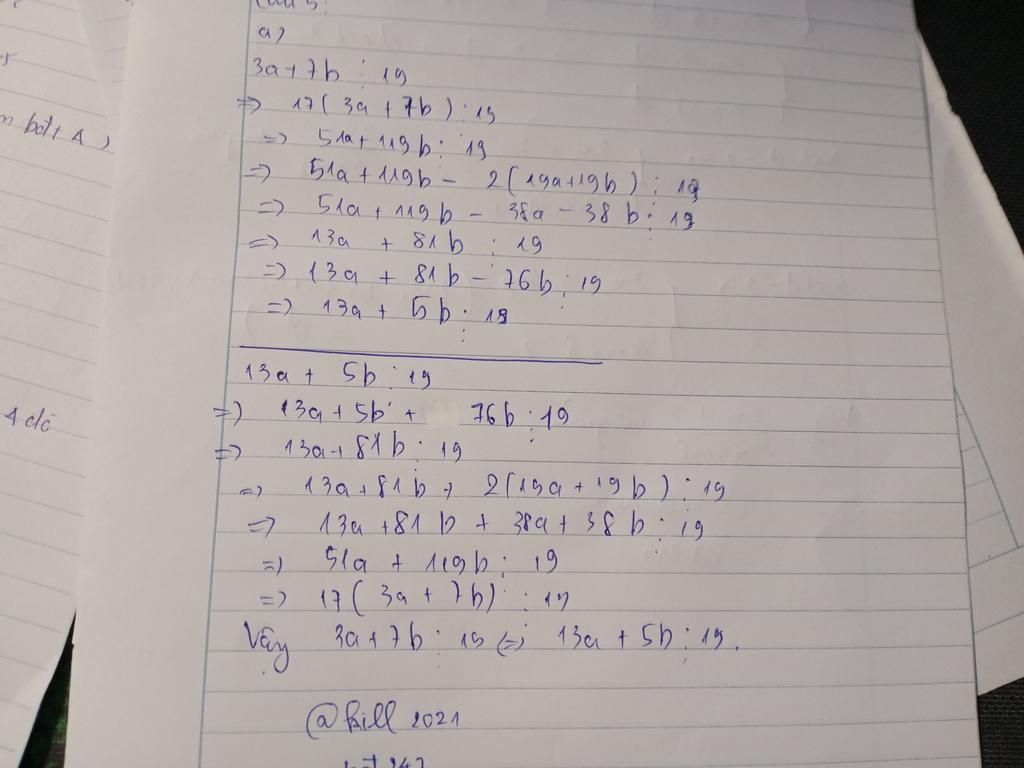 a)
3a+7b ⋮ 19
=> 17(3a + 7b) ⋮ 19
=> 51a+119b ⋮ 19
=> 51a+119b - 2(19a+19b) ⋮ 19
=> 51a+119b - 38a - 38b ⋮ 19
=> 13a + 81b ⋮ 19
=> 13a + 81b - 76b ⋮ 19
=> 13a + 5b ⋮ 19
13a + 5b ⋮ 19
=> 13a+5b + 76b ⋮ 19
=> 13a+81b ⋮ 19
=> 13a+81b + 2(19a+19b) ⋮ 19
=> 13a+81b + 38a+38b ⋮ 19
=> 51a + 119b ⋮ 19
=> 17(3a + 7b) ⋮ 19
Vậy 3a+7b ⋮ 19 <=> 13a + 5b ⋮ 19.
@kill 2021